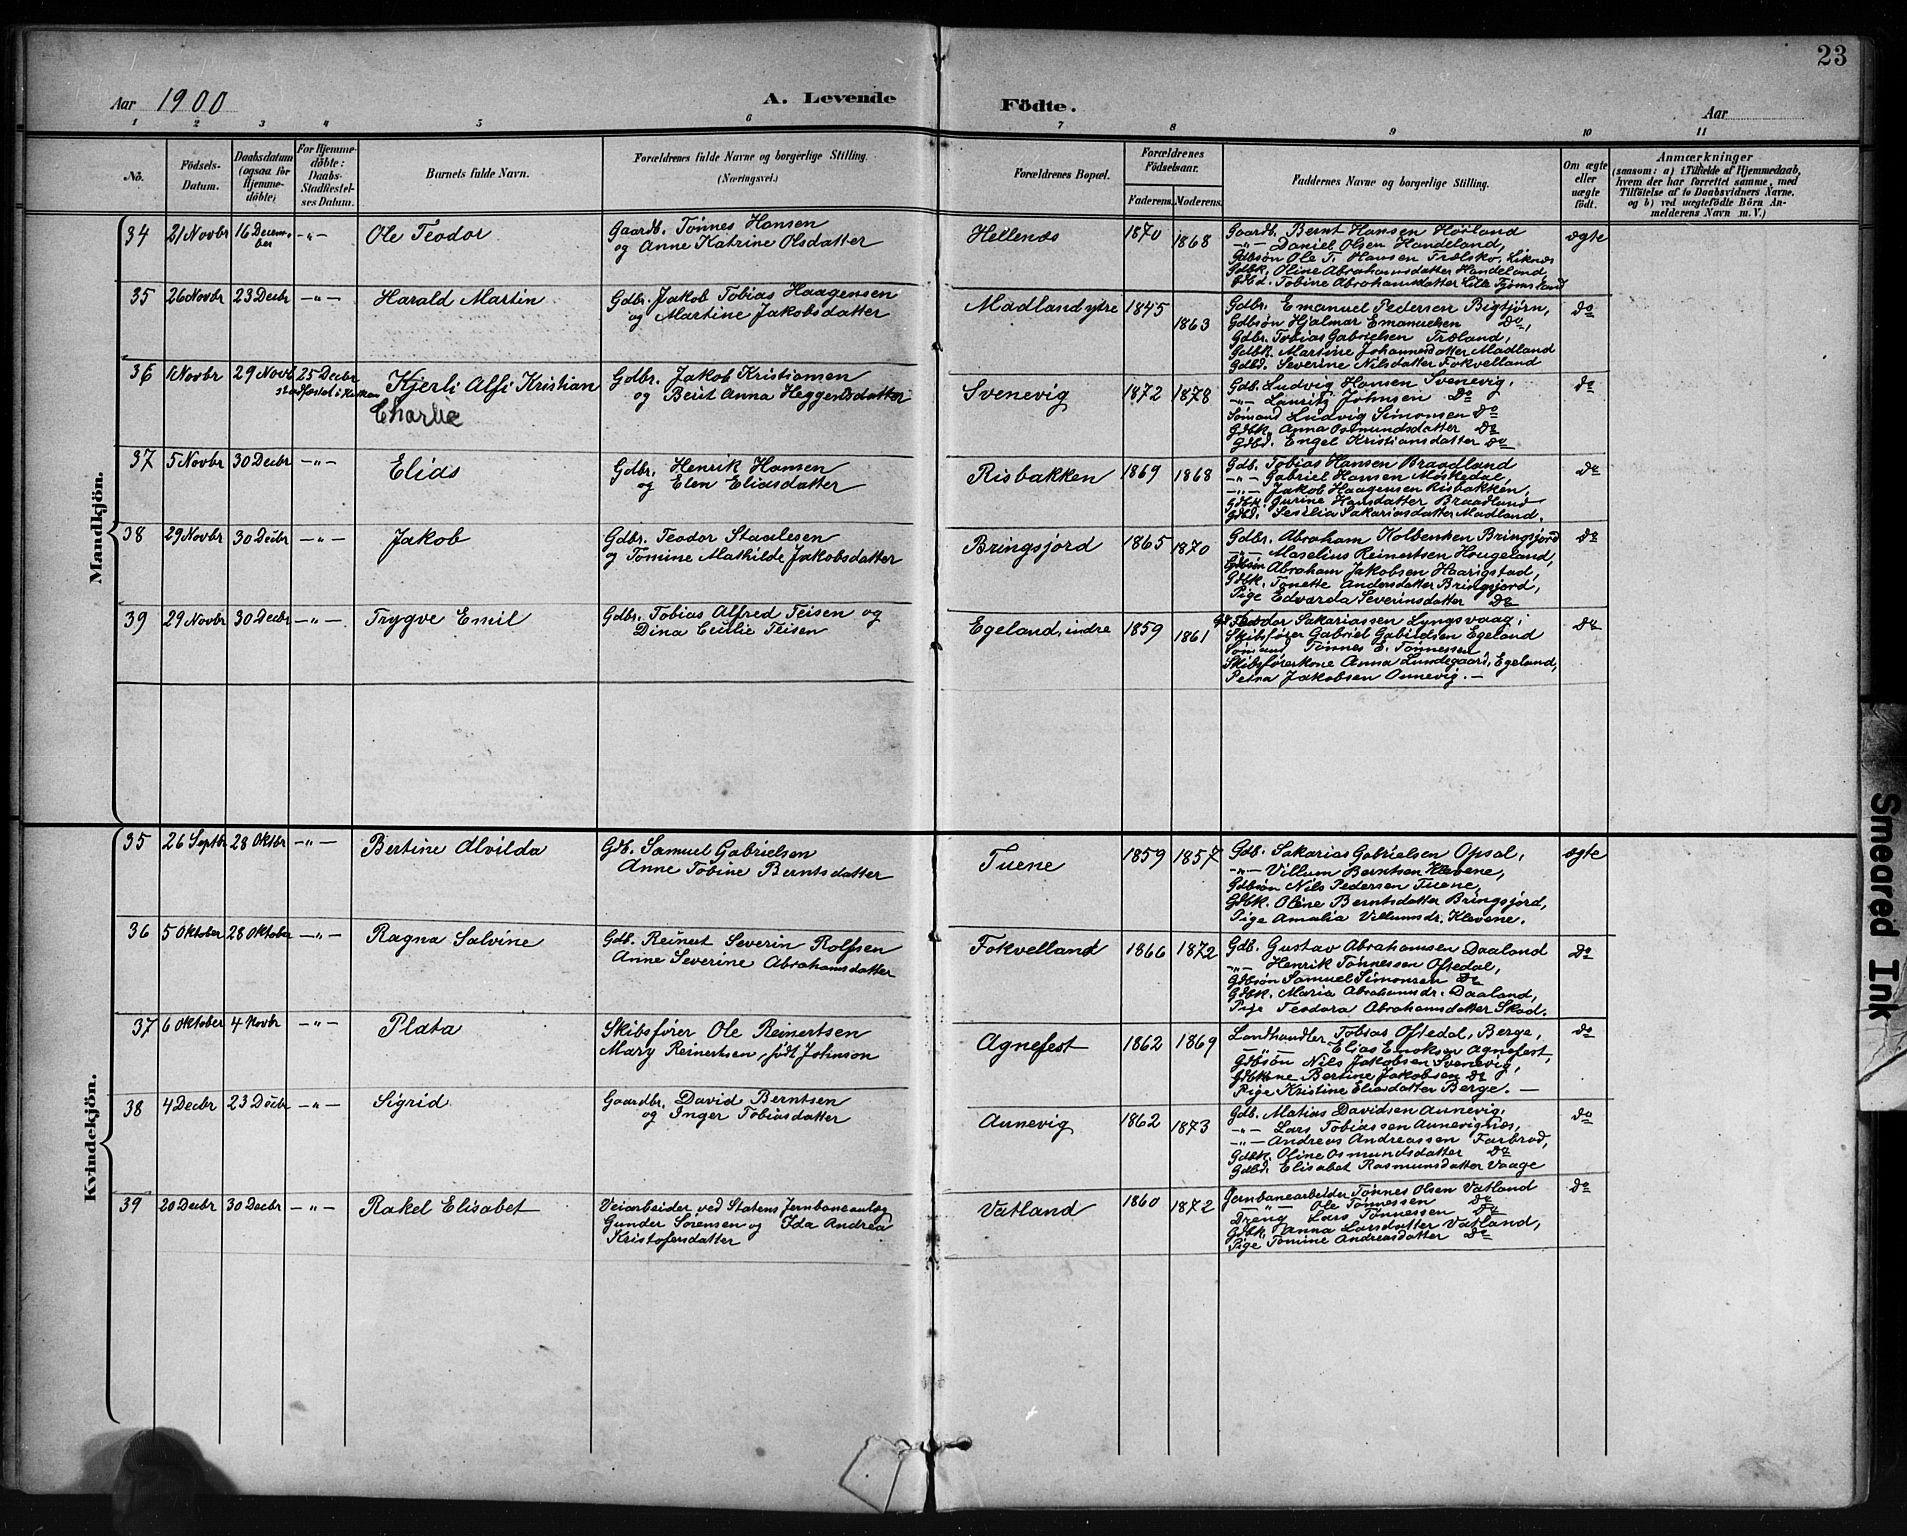 23
Aar 1900 A. Levende Födte. Aar
1 2 3 4 5 6 7 8 9 10 11
No. Födsels-Datum. Daabsdatum (ogsaa for Hjemmedöbte) For Hjemmedöbte: Daabs-Stadfæstelses Datum. Barnets fulde Navn. Forældrenes fulde Navne og borgerlige Stilling. (Næringsvei.) Forældrenes Bopæl. Forældrenes Födselsaar. Faderens. Moderens. Faddernes Navne og borgerlige Stilling. Om ægte eller uægte födt. Anmærkninger (saasom: a) i Tilfælde af Hjemmedaab, hvem der har forrettet samme, med Tilföielse af to Daabsvidners Navne, og b) ved uægtefödte Börn Anmelderens Navn m. V.)
Mandkjön.
34 21 Novbr 16 December -"- Ole Teodor Gaardb. Tönnes Hansen Hellenæs 1870 1868 Gaardb. Bernt Hansen Hörland ægte
og Anne Katrine Olsdatter -"- Daniel Olsen Handeland,
Gdbsön Ole T. Hansen Trælsko, Liknæs
Gdbk. Oline Abrahamsdatter Handeland,
Gdbd. Tobine Abrahamsdatter Lille
35 26 Novbr 23 Decbr -"- Harald Martin Gdbr. Jakob Tobias Haagensen Madland ytre 1845 1863 Gdbr. Emanuel Pedersen Bigtjörn, Do
og Martine Jakobsdatter Gdbsön Hjalmar Emanuelsen Do,
Gdbr. Tobias Gabrielsen Træland,
Gdbk. Martine Johannesdatter Madland
Gdbd. Severine Nilsdatter Fokvelland
36 1 Novbr 29 Novb 25 Decbr Kjerli Alfi Kristian Gdbr. Jakob Kristiansen Svenevig 1872 1878 Gdb. Ludvig Hansen Svenevig, Do
stadfæstet i Kirken Charlie og Berit Anna Heggertsdatter -"- Lauritz Johnsen Do
Sömand Ludvig Simonsen Do
Gdbk. Anna Osmundsdatter Do
Gdbd. Engel Kristiansdatter Do
37 5 Novbr 30 Decbr -"- Elias Gdbr. Henrik Hansen Risbakken 1869 1868 Gdb. Tobias Hansen Braadland Do
og Elen Eliasdatter -"- Gabriel Hansen Moskedal,
-"- Jakob Haagensen Risbakken,
Gdbk. Gurine Hansdatter Braadland
Gdbd. Sesilia Sakariasdatter Madland.
38 29 Novbr 30 Decbr -"- Jakob Gdbr. Teodor Staalesen Bringsjord 1865 1870 Gdbr. Abraham Kolbensen Bringsjord Do
og Tomine Mathilde Jakobsdatter -"- Maselius Reinertsen Hougeland,
Gdbsön Abraham Jakobsen Haarigstad,
Gdbk. Tonette Andersdatter Bringsjord,
Pige Edvarda Severinsdatter Do
39 29 Novbr 30 Decbr -"- Trygve Emil Gdbr. Tobias Alfred Teisen og Egeland, indre 1859 1861 Teodor Sakariassen Lyngsvaag, Do
Dina Cecilie Teisen Skibsförer Gabriel Gabrielsen Egeland
Sömand Tönnes E. Tönnessen,
Skibsförerkone Anna Lundegaard, Egeland,
Petra Jakobsen Aunevig. –
Kvindekjön.
35 26 Septbr 28 Oktbr -"- Bertine Alvilda Gdb. Samuel Gabrielsen Tuene 1859 1857 Gdb. Sakarias Gabrielsen Opsal, ægte
Anne Tobine Berntsdatter -"- Villum Berntsen Klevene,
Gdbsön Nils Pedersen Tuene,
Gdbk. Oline Berntsdatter Bringsjord,
Pige Amalia Villumsdr. Klevene.
36 5 Oktober 28 Oktober -"- Ragna Salvine Gdb. Reinert Severin Rolfsen Fokvelland 1866 1872 Gdb. Gustav Abrahamsen Daaland Do
Anne Severine Abrahamsdatter -"- Henrik Tönnessen Oftedal,
Gdbsön Samuel Simonsen Do
Gdbk. Maria Abrahamsdr. Daaland,
Pige Teodora Abrahamsdatter Skod.
37 6 Oktober 4 Novbr -"- Plata Skibsförer Ole Reinertsen Agnefest 1862 1869 Landhandler Tobias Oftedal, Berge, Do
Mary Reinertsen, födt Johnson -"- Elias Enoksen Agnefest,
Gdbsön Nils Jakobsen Svenevig,
Gdbkone Bertine Jakobsen Do
Pige Kristine Eliasdatter Berge. –
38 4 Decbr 23 Decbr -"- Sigrid Gaardbr. David Berntsen Aunevig 1862 1873 Gdb. Matias Davidsen Aunevig, Do
og Inger Tobiasdatter -"- Lars Tobiassen Aunevignæs,
-"- Andreas Andreassen Farbrod,
Gdbk. Oline Osmundsdatter Do
Gdbd. Elisabet Rasmusdatter Vaage
39 20 Decbr 30 Decbr -"- Rakel Elisabet Veiarbeider ved Statens Jernbaneanlæg Vatland 1860 1872 Jernbanearbeider Tönnes Olsen Vatland Do
Gunder Sörensen og Ida Andrea -"- Ole Tönnessen Do
Kristofersdatter Dreng Lars Tönnessen Do
Gdbk. Anna Larsdatter Vatland,
Pige Tomine Andreasdatter Do
Smeared Ink